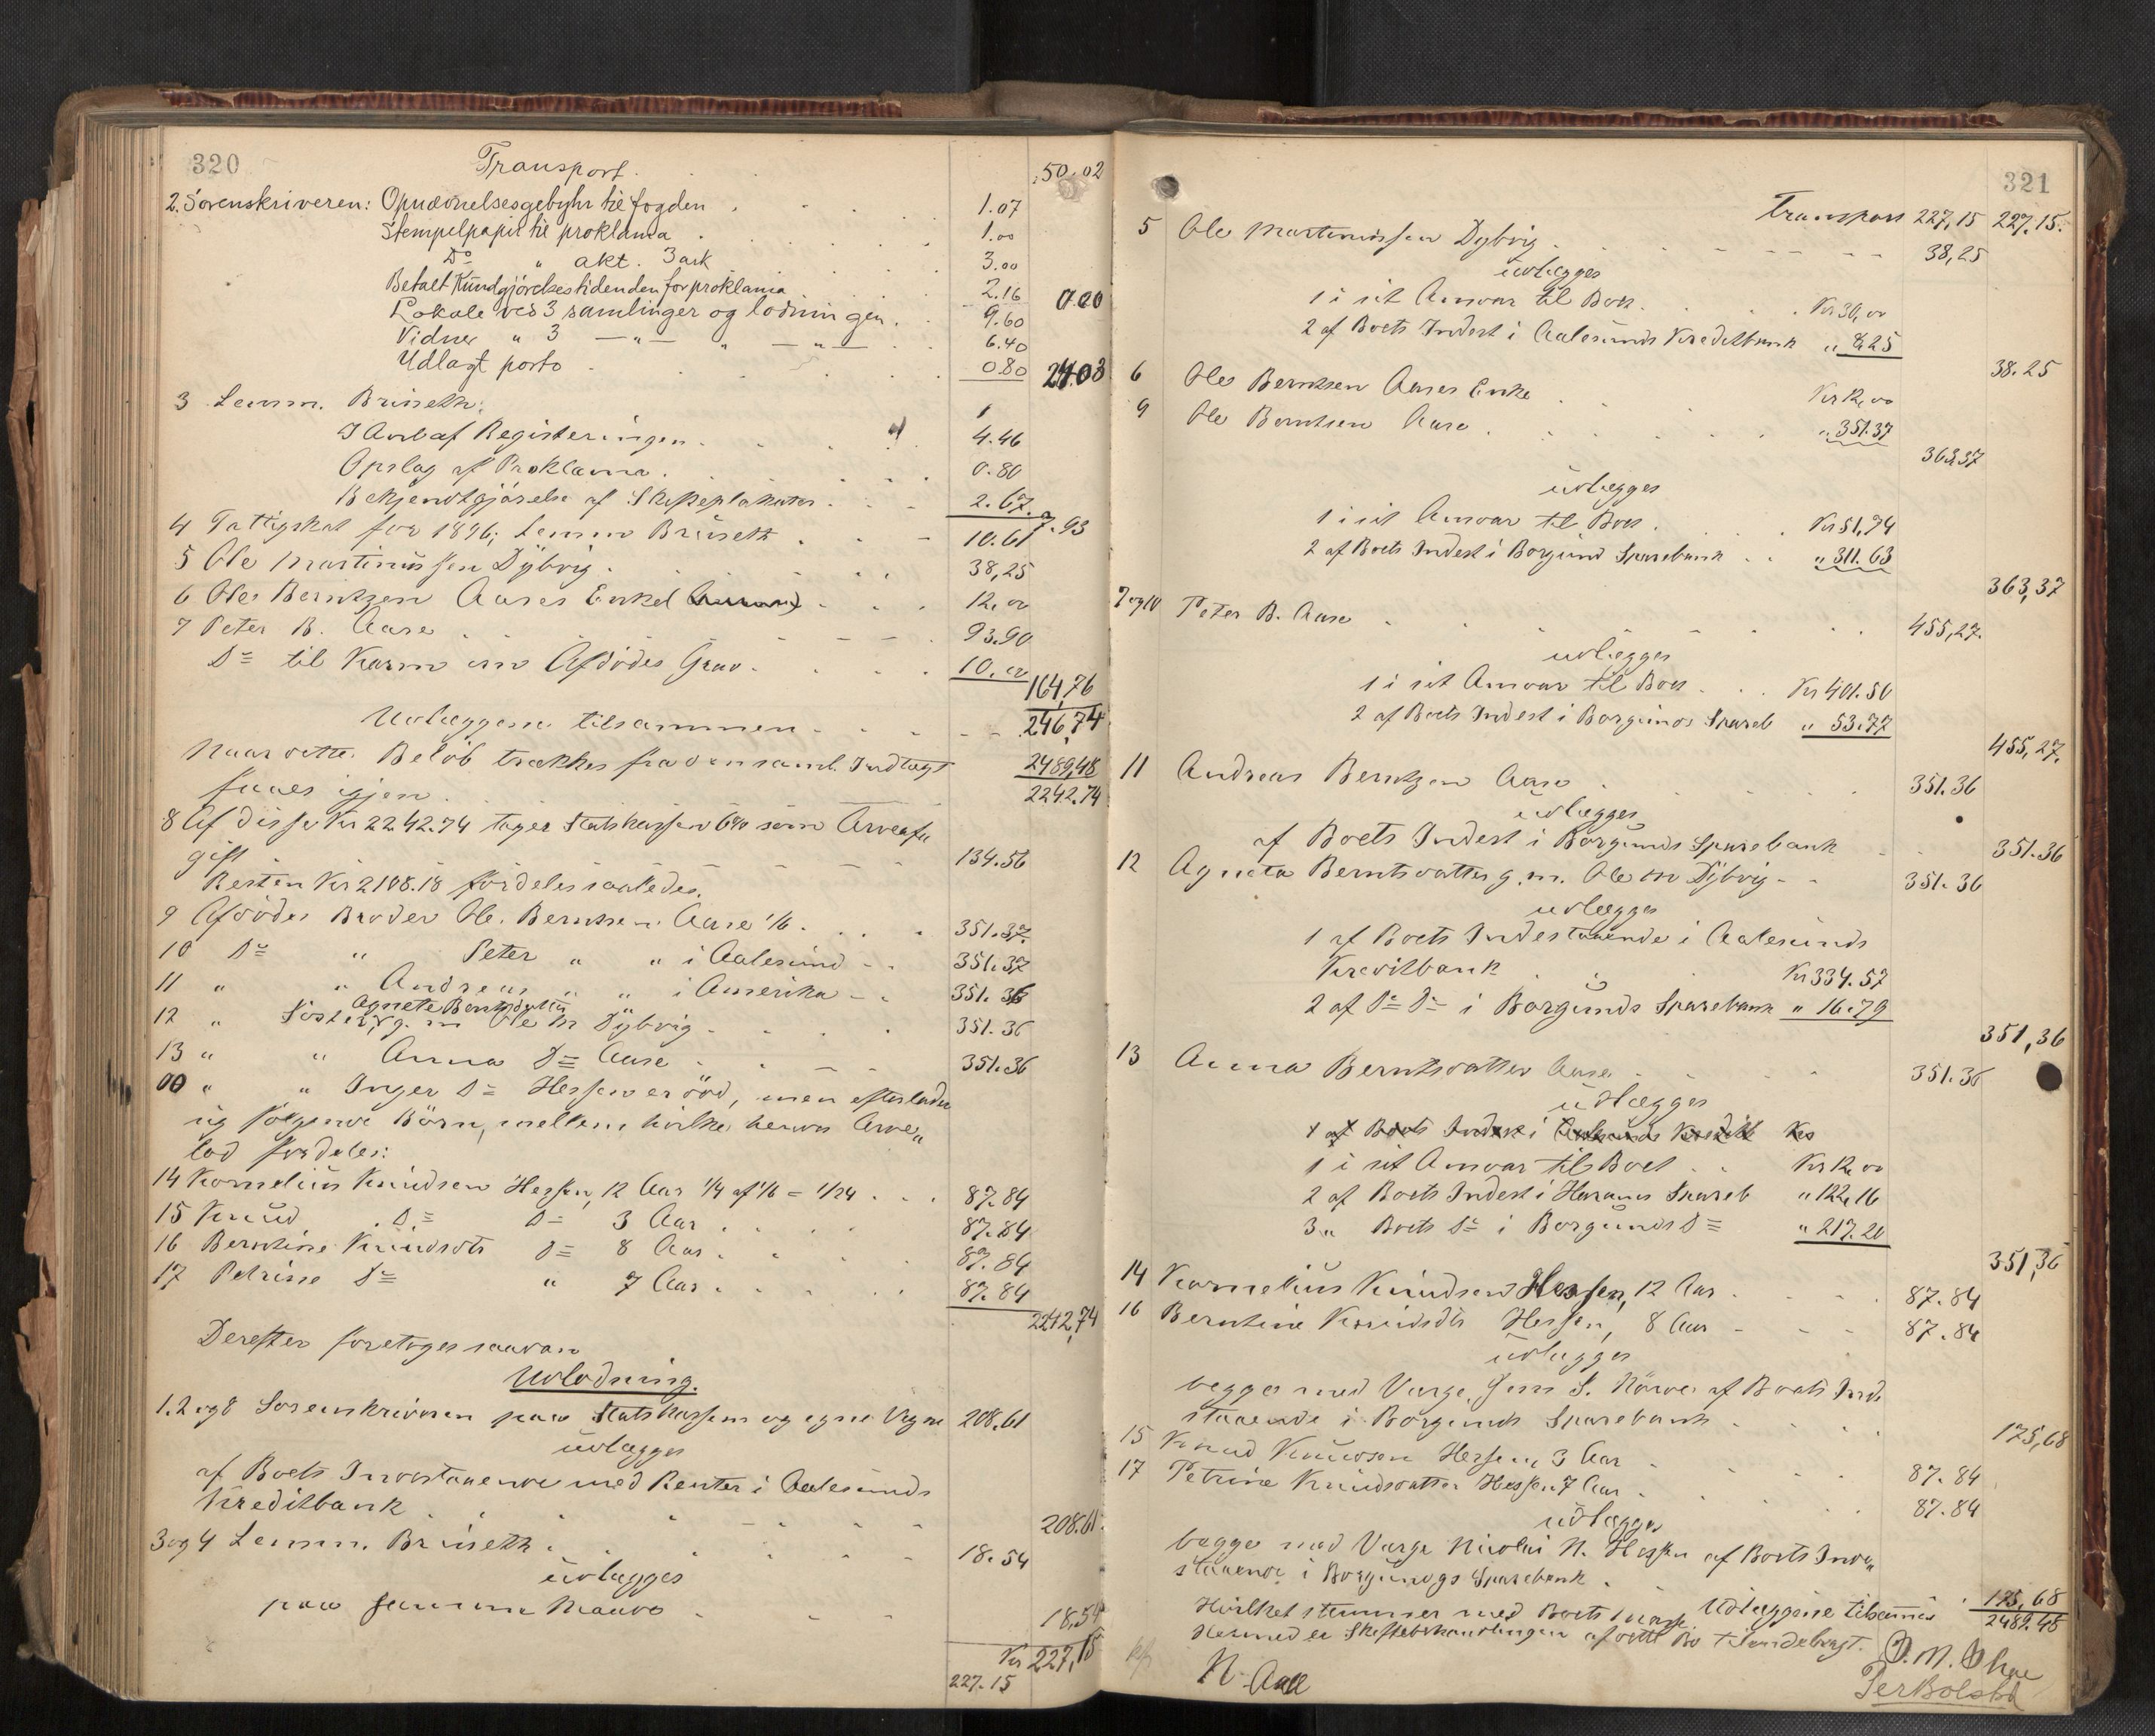 320
Transport. 50.02
2. Sorenskriveren: Opnævnelsesgebyhr til fogden 1.07
Stempelpapir til proklama 1.00
Do " akt. 3 ark 3.00
Betalt Kundgjörelsestidenden for proklama 2.16
Lokale ved 3 samlinger og lodningen. 9.60
Vidner " 3 — " — " — " — 6.40
Udlagt porto 0.80 24.03
3 Lensm. Brüseth:
I Anl af Registeringen 4.46
Opslag af Proklama. 0.80
Bekjendtgjörelse af Skifteplakater 2.67. 7.93
4 Fattigskat for 1896, Lensm Brüseth 10.61
5 Ole Martinussen Dybvig. 38,25
6 Ole Berntzen Aases Enke 12,00
7 Peter B. Aase 93.90
Do til Karm om Afdödes Grav 10.00
164,76
Udlæggene tilsammen 246,74
Naar dette Belöb trækkes fra den saml. Indtægt 2489,48
faaes igjen 2242.74
8 Af disse Kr 2242.74 tager Statskassen 6% som Arveaf„
gift 134.56
Resten Kr 2108.18 fordeles saaledes.
9 Afdödes Broder Ole Berntsen Aase 1/6 351.37.
10 Do " Peter " " i Aalesund 351.37
11 " " Andreas " " i Amerika 351.36
12 " Söster Agnete Berntsdatter g. m Ole M Dÿbvig 351.36
13 " " Anna Do Aase 351.36
00 " " Inger Do Hessen er död, men efterlader
sig fölgende Börn, mellem hvilke hendes Arve„
lod fordeles:
14 Kornelius Knudsen Hessen, 12 Aar 1/4 af 1/6 = 1/24 87.84
15 Knud Do Do 3 Aar 87.84
16 Berntine Knudsdtr Do 8 Aar 87.84
17 Petrine Do " 7 Aar 87.84
2242,74
Derefter foretoges saadan
Udlodning.
1.2 og 8 Sorenskriveren paa Statskassens og egne Vegne 208,61
udlægges
af Boets Indestaaende med Renter i Aalesunds
Kreditbank 208.61
3 og 4 Lensm. Brüseth 18.54
udlægges
paa samme Maade 18,54
Kr 227,15
227.15
321
Transport 227,15 227.15.
5 Ole Martinussen Dybvig 38,25
udlægges
1 i sit Ansvar til Boet Kr 30,00
2 af Boets Indest i Aalesunds Kreditbank " 8.25
38.25
6 Ole Berntsen Aases Enke Kr 12,00
9 Ole Berntsen Aase " 351.37
363,37
udlægges
1 i sit Ansvar til Boet Kr 51,74
2 af Boets Indest i Borgund Sparebank " 311.63
363,37
7 og 10 Peter B. Aase 455,27.
udlægges
1 i sit Ansvar til Boet Kr 401.50
2 af Boets Indest i Borgunds Spareb " 53.77
455,27.
11 Andreas Berntzen Aase 351.36
udlægges
af Boets Indest i Borgunds Sparebank 351.36
12 Agneta Berntsdatter g. m. Ole M Dÿbvig 351.36
udlægges
1 af Boets Indestaaende i Aalesunds
Kreditbank Kr 334.57
2 af Do Do i Borgunds Sparebank " 16.79
351,36
13 Anna Berntsdatter Aase 351.36
udlægges
1 af Boets Indest i Aalesunds Kreditb Kr
1 i sit Ansvar til Boet Kr 12,00
2 af Boets Indest i Harams Spareb " 122,16
3 " Boets Do i Borgunds Do " 217.20
351,36
14 Kornelius Knudsen Hessen, 12 Aar 87.84
16 Berntine Knudsdtr Hessen, 8 Aar 87.84
udlægges
begge med Værge Jens S. Nörve af Boets Inde
staaende i Borgunds Sparebank 175,68
15 Knud Knudsen Hessen, 3 Aar 87.84
17 Petrine Knudsdatter Hessen 7 Aar 87.84
udlægges
begge med Værge Nicolai N. Hessen af Boets Inde„
staaende i Borgunds Sparebank 175,68
Hvilket stemmer med Boets Masse Udlæggene tilsammen 2489.48
Hermed er Skiftebehandlingen af dette Bo tilendebragt.
N. Aall
Per Bolstad